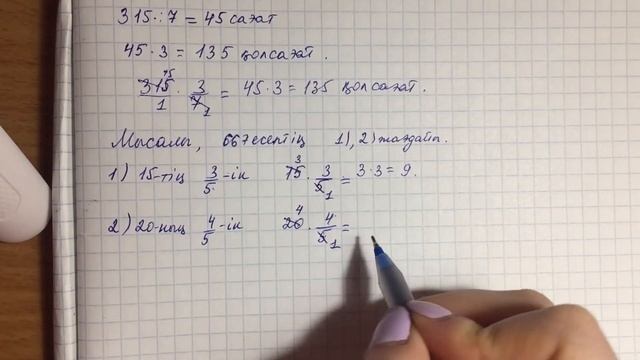 315 : 7 = 45 сағат
45 · 3 = 135 қолсағат.
315/1 45 · 3/7 1 = 45 · 3 = 135 қолсағат.
Мысалы, 667 есептің 1), 2) жағдайы.
1) 15-тің 3/5-ін 15 3 · 3/5 1 = 3 · 3 = 9.
2) 20-ның 4/5-ін 20 4 · 4/5 1 =